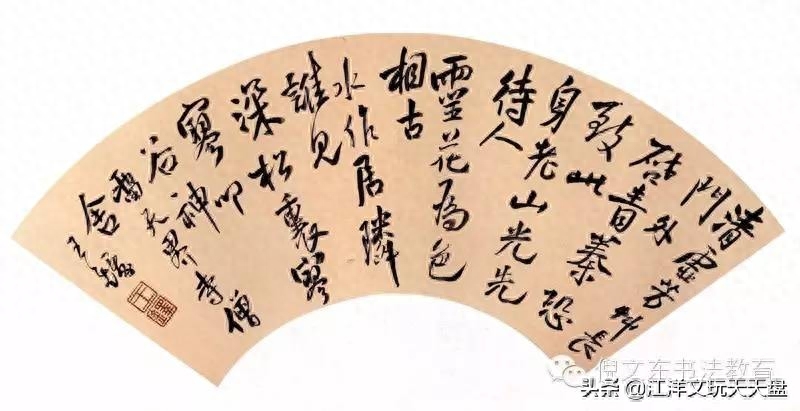 清虛芳艸長
門
外青蓁
致此恐
身老山光先
待人
花為色
相古
水作居隣
誰見
深松裏寥
寥叩
谷神
天界寺僧
舍
王鐸
王鐸
倪文东书法教育
头条 @江洋文玩天天盘